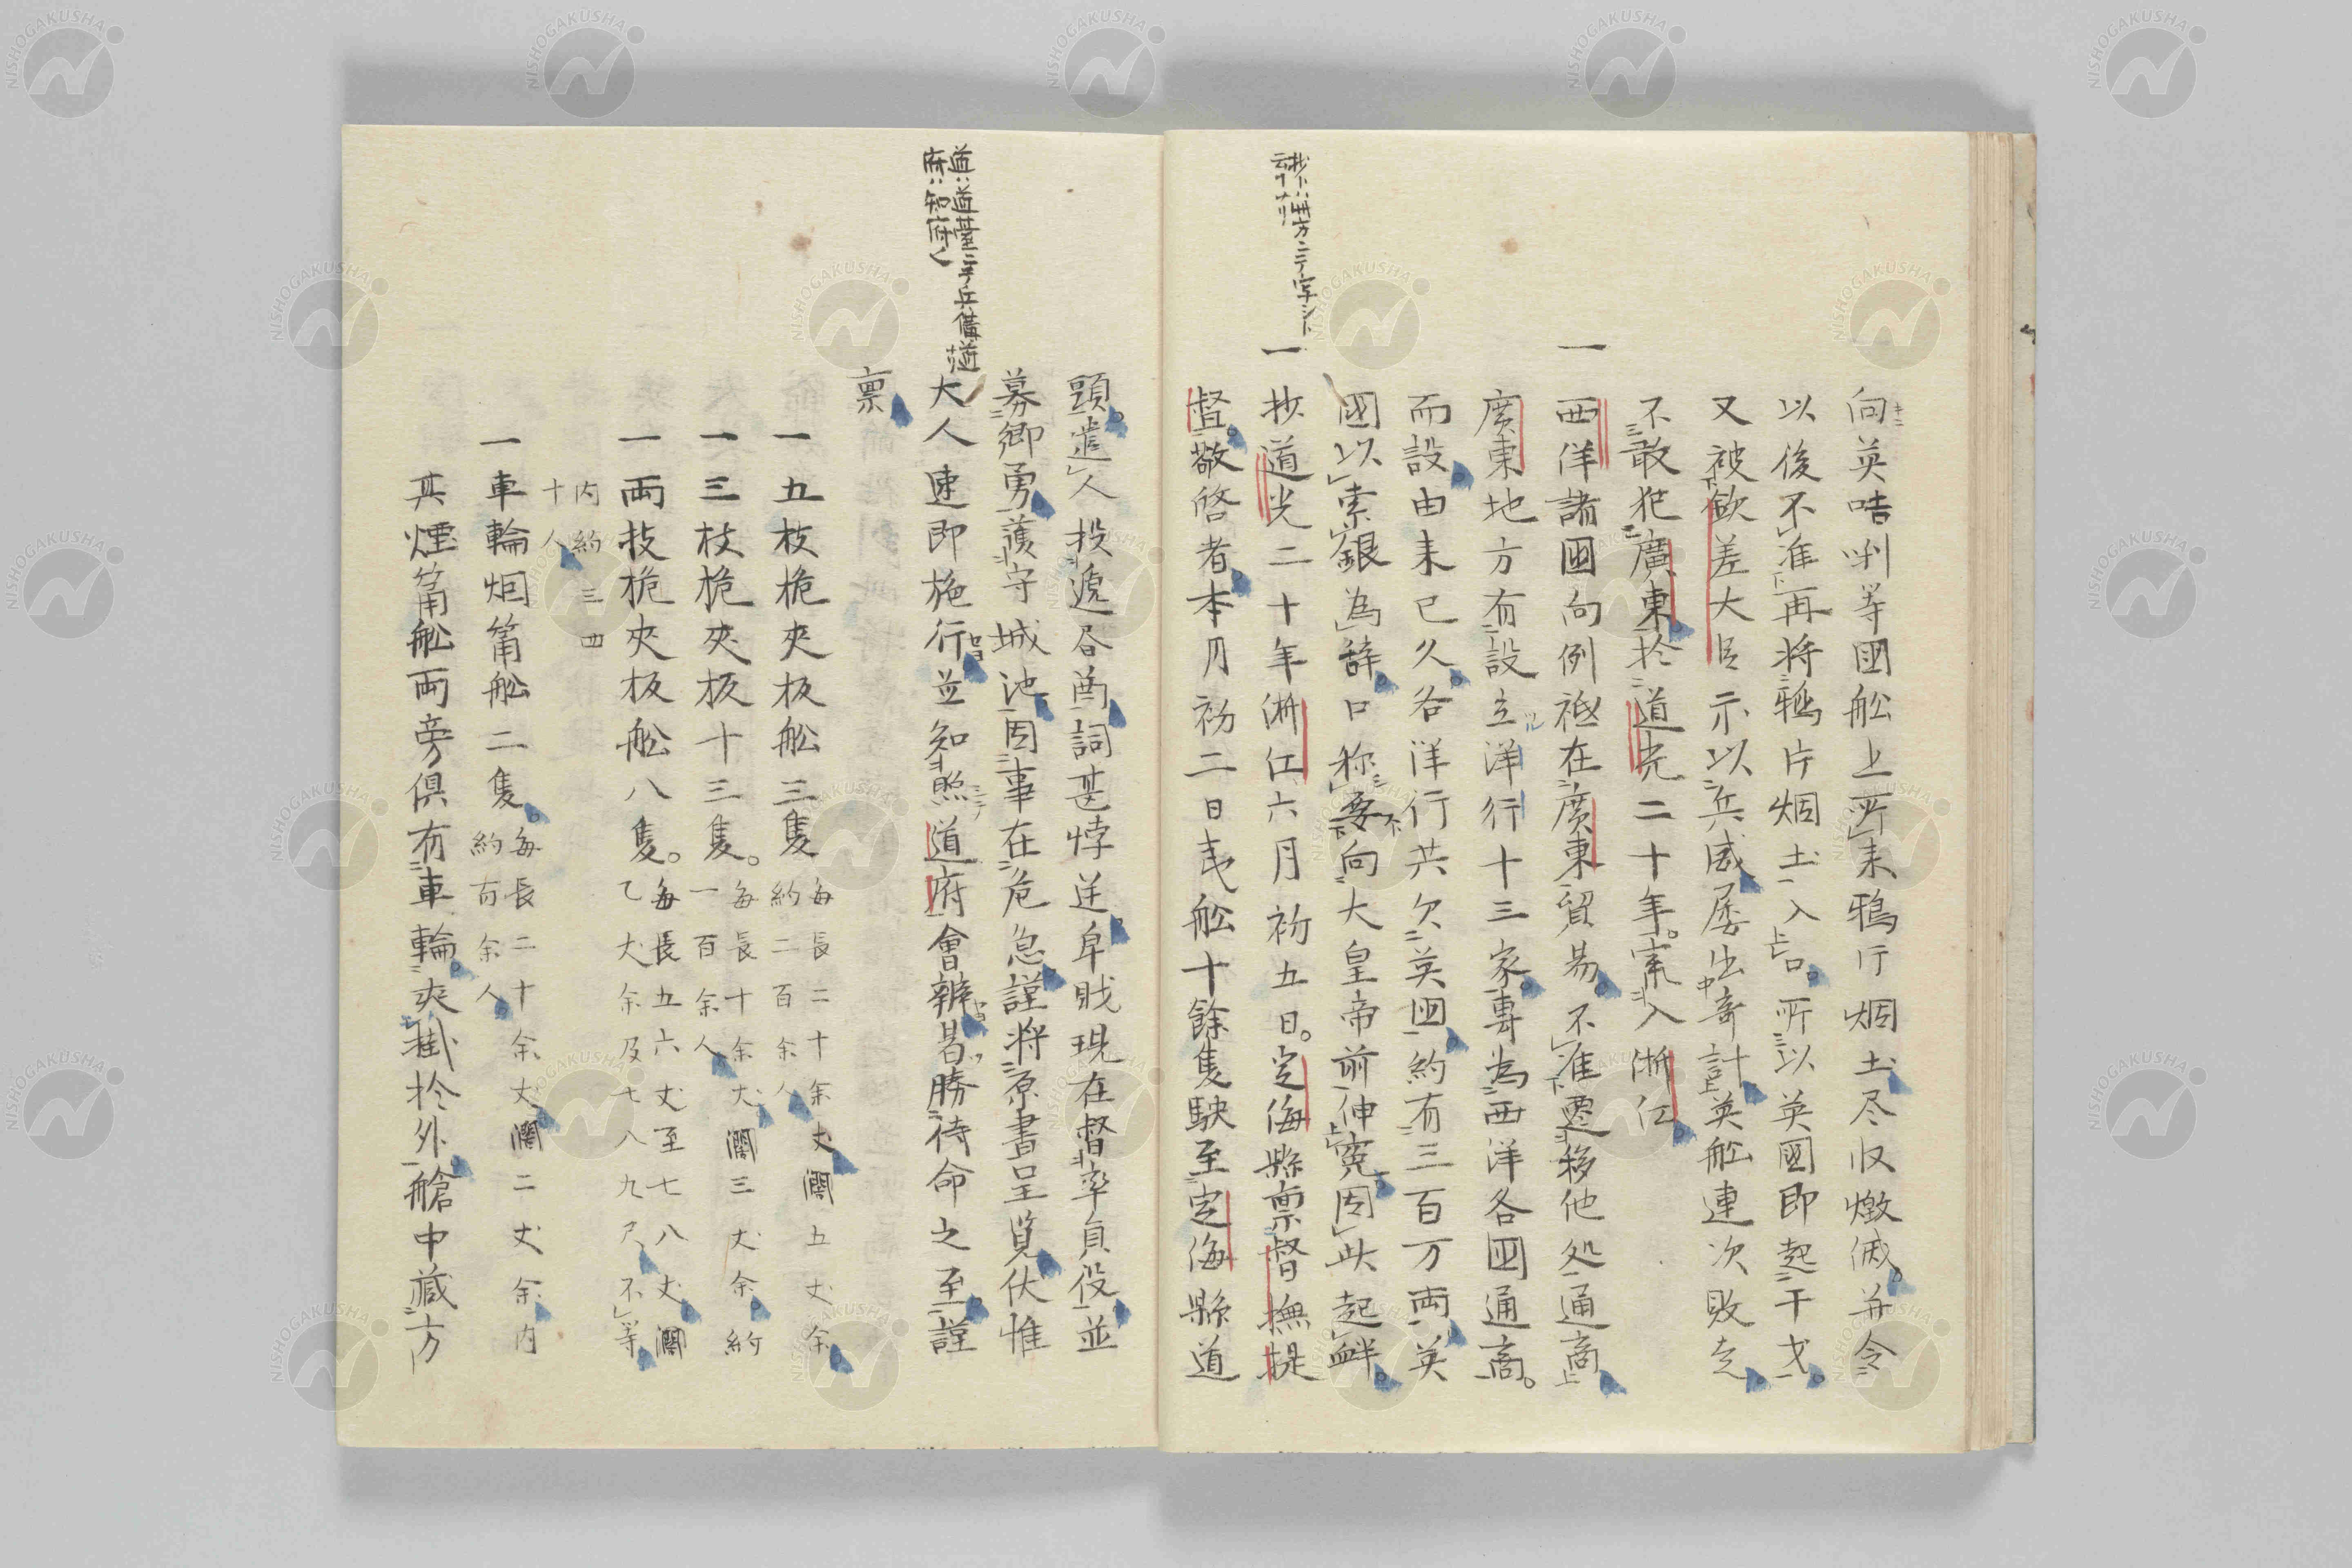 向英咭唎等國舩上所来鴉片烟土尽收燬滅并令
以後不准再将鴉片烟土入口所以英國即起干戈
又被欽差大臣示以兵威屡出奇計英舩連次敗走
不敢犯廣東於道光二十年竄入浙江
一西洋諸國向例祗在廣東貿易不准遷移他処通商
廣東地方有設立洋行十三家專為西洋各國通商
而設由来已久各洋行共欠英國約有三百万両英
國以索銀為辞口称要向大皇帝前伸寃因此起衅
一抄道光二十年浙江六月初五日定海縣禀督撫提
督敬啓者本月初二日夷舩十餘隻駛至定海縣道
抄トハ冊方ニテ字シト
頭遣人投逓
詞甚悖逆卑職現在督率員役並
募郷勇護守城池因事在危急謹将原書呈覧伏惟
大人速即施行並知照道府會辦曷勝待命之至謹
禀
道ハ道臺ニテ兵備道
府ハ知府
一五枝桅夾板舩三隻 每長二十余丈濶五丈余
約二百余人
一三枝桅夾板十三隻 每長十余丈濶三丈余約
一百余人
一両技桅夾板舩八隻 每長五六丈至七八丈濶
乙丈余及七八九尺不等
内約三四
十人
一車輪烟筩舩二隻 每長二十余丈濶二丈余内
約百余人
其煙筩舩両旁倶有車輪夾掛於外艙中蔵方
NISHOGAKUSHA